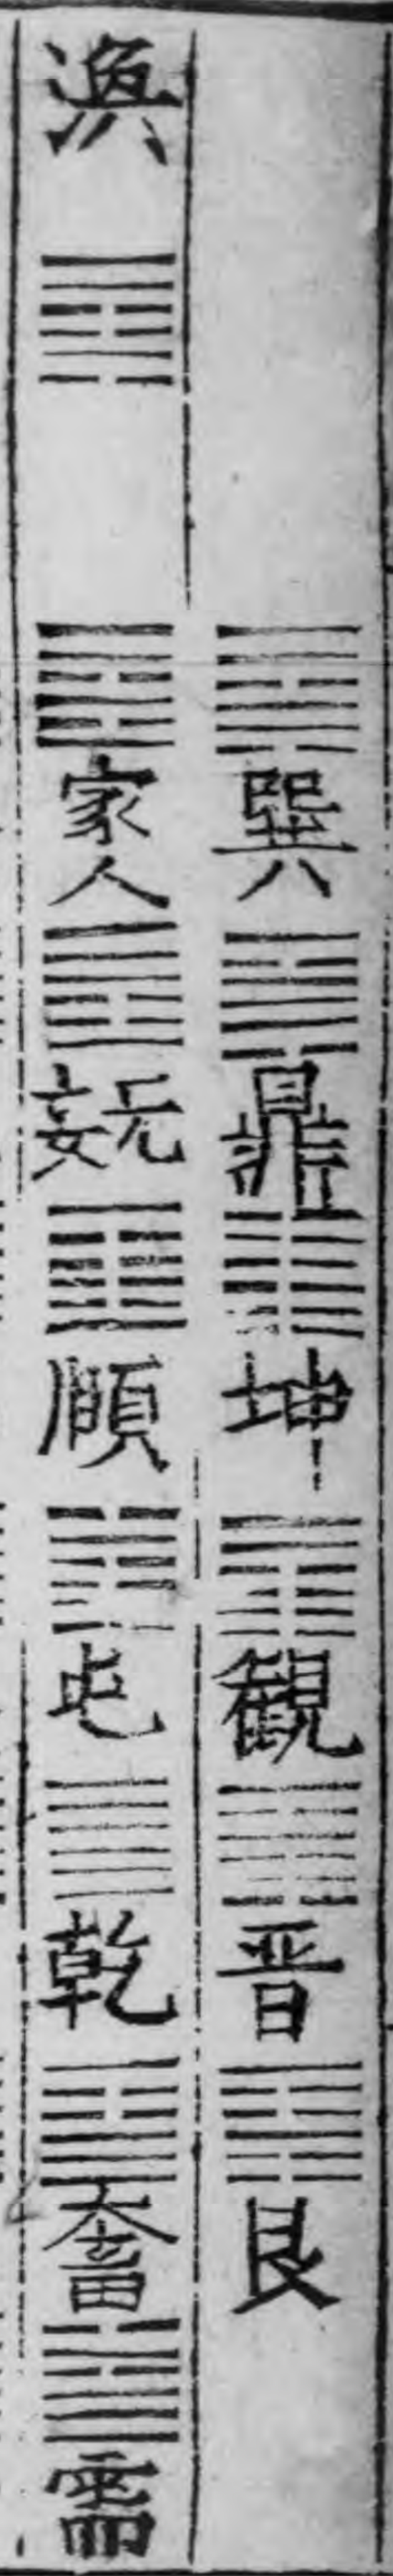 巽 鼎 坤 観 晋 艮
渙 家人 无妄 頤 屯 乾 大畜 需